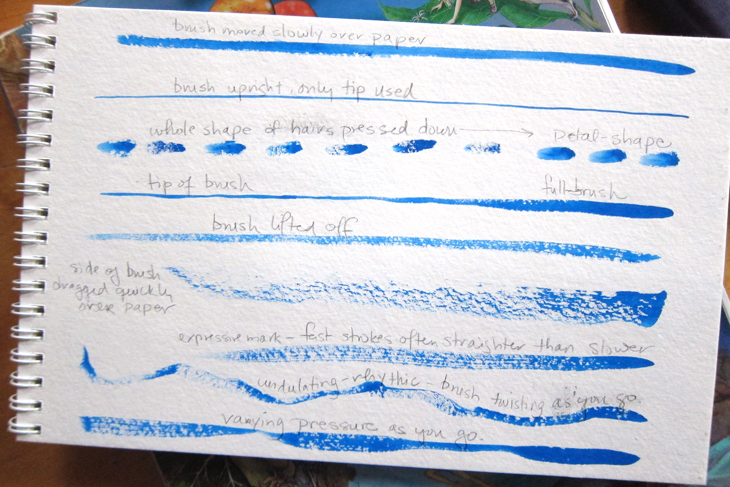 brush moved slowly over paper
brush upright, only tip used
whole shape of hairs pressed down → petal-shape
tip of brush full-brush
brush lifted off
side of brush
dragged quickly
over paper
expressive mark - fast strokes often straighter than slower
undulating-rhythic - brush twisting as you go
varying pressure as you go.